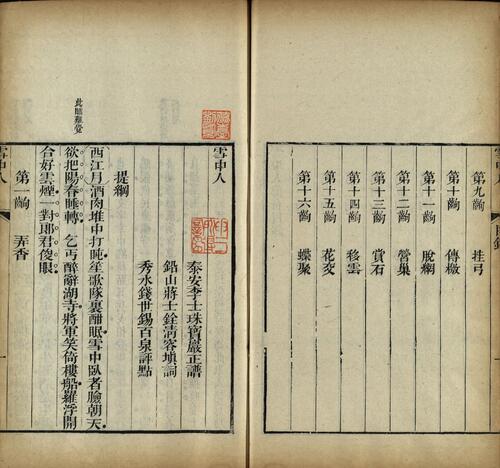 第九齣　挂弓
第十齣　傳檄
第十一齣　脫網
第十二齣　營巢
第十三齣　賞石
第十四齣　移雲
第十五齣　花交
第十六齣　蝶聚
雪中人
泰安李士珠寶巖正譜
鉛山蔣士銓淸容塡詞
秀水錢世錫百泉評點
提綱
此睡難覺
西江月酒肉堆中打盹笙歌隊裏酣眠雪中臥者臉朝天
欲把陽春睡轉　乞丐醉辭湖寺將軍笑倚樓船羅浮開
合好雲煙一對郎君俊眼
第一齣　弄香
雪中人